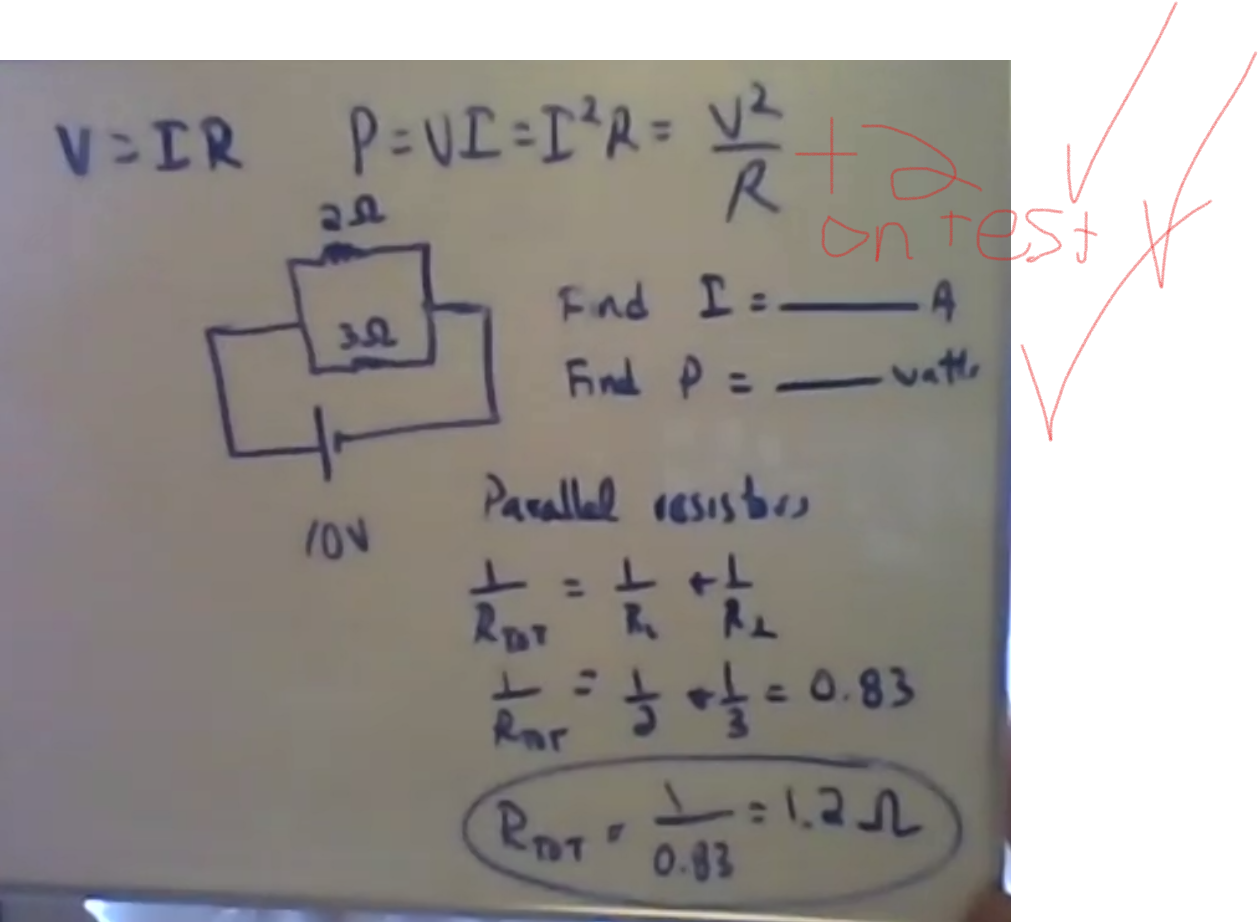 V = IR P = VI = I²R = V²/R
+2
on test
2Ω
3Ω
10V
Find I = ____ A
Find P = ____ watts
Parallel resistors
1/R_TOT = 1/R₁ + 1/R₂
1/R_TOT = 1/2 + 1/3 = 0.83
R_TOT = 1/0.83 = 1.2 Ω